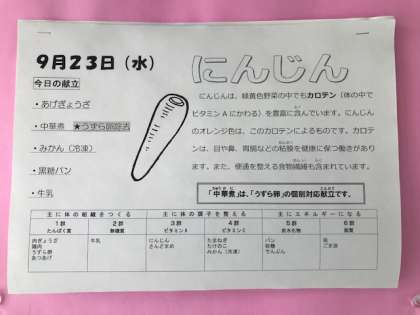 9月23日（水）
今日の献立
・あげぎょうざ
・中華煮 ★うずら卵除去
・みかん（冷凍）
・黒糖パン
・牛乳
にんじん
にんじんは、緑黄色野菜の中でもカロテン（体の中で
ビタミンAにかわる）を豊富に含んでいます。にんじん
のオレンジ色は、このカロテンによるものです。カロテ
ンは、目や鼻、胃腸などの粘膜を健康に保つ働きがあり
ます。また、便通を整える食物繊維も含まれています。
「中華煮」は、「うずら卵」の個別対応献立です。
主に体の組織をつくる 主に体の調子を整える 主にエネルギーになる
1群 2群 3群 4群 5群 6群
たんぱく質 無機質 ビタミンA ビタミンC 炭水化物 脂質
肉ぎょうざ 牛乳 にんじん たまねぎ パン 油
鶏肉 さんどまめ たけのこ 砂糖 ごま油
うずら卵 みかん（冷凍） でんぷん
あつあげ